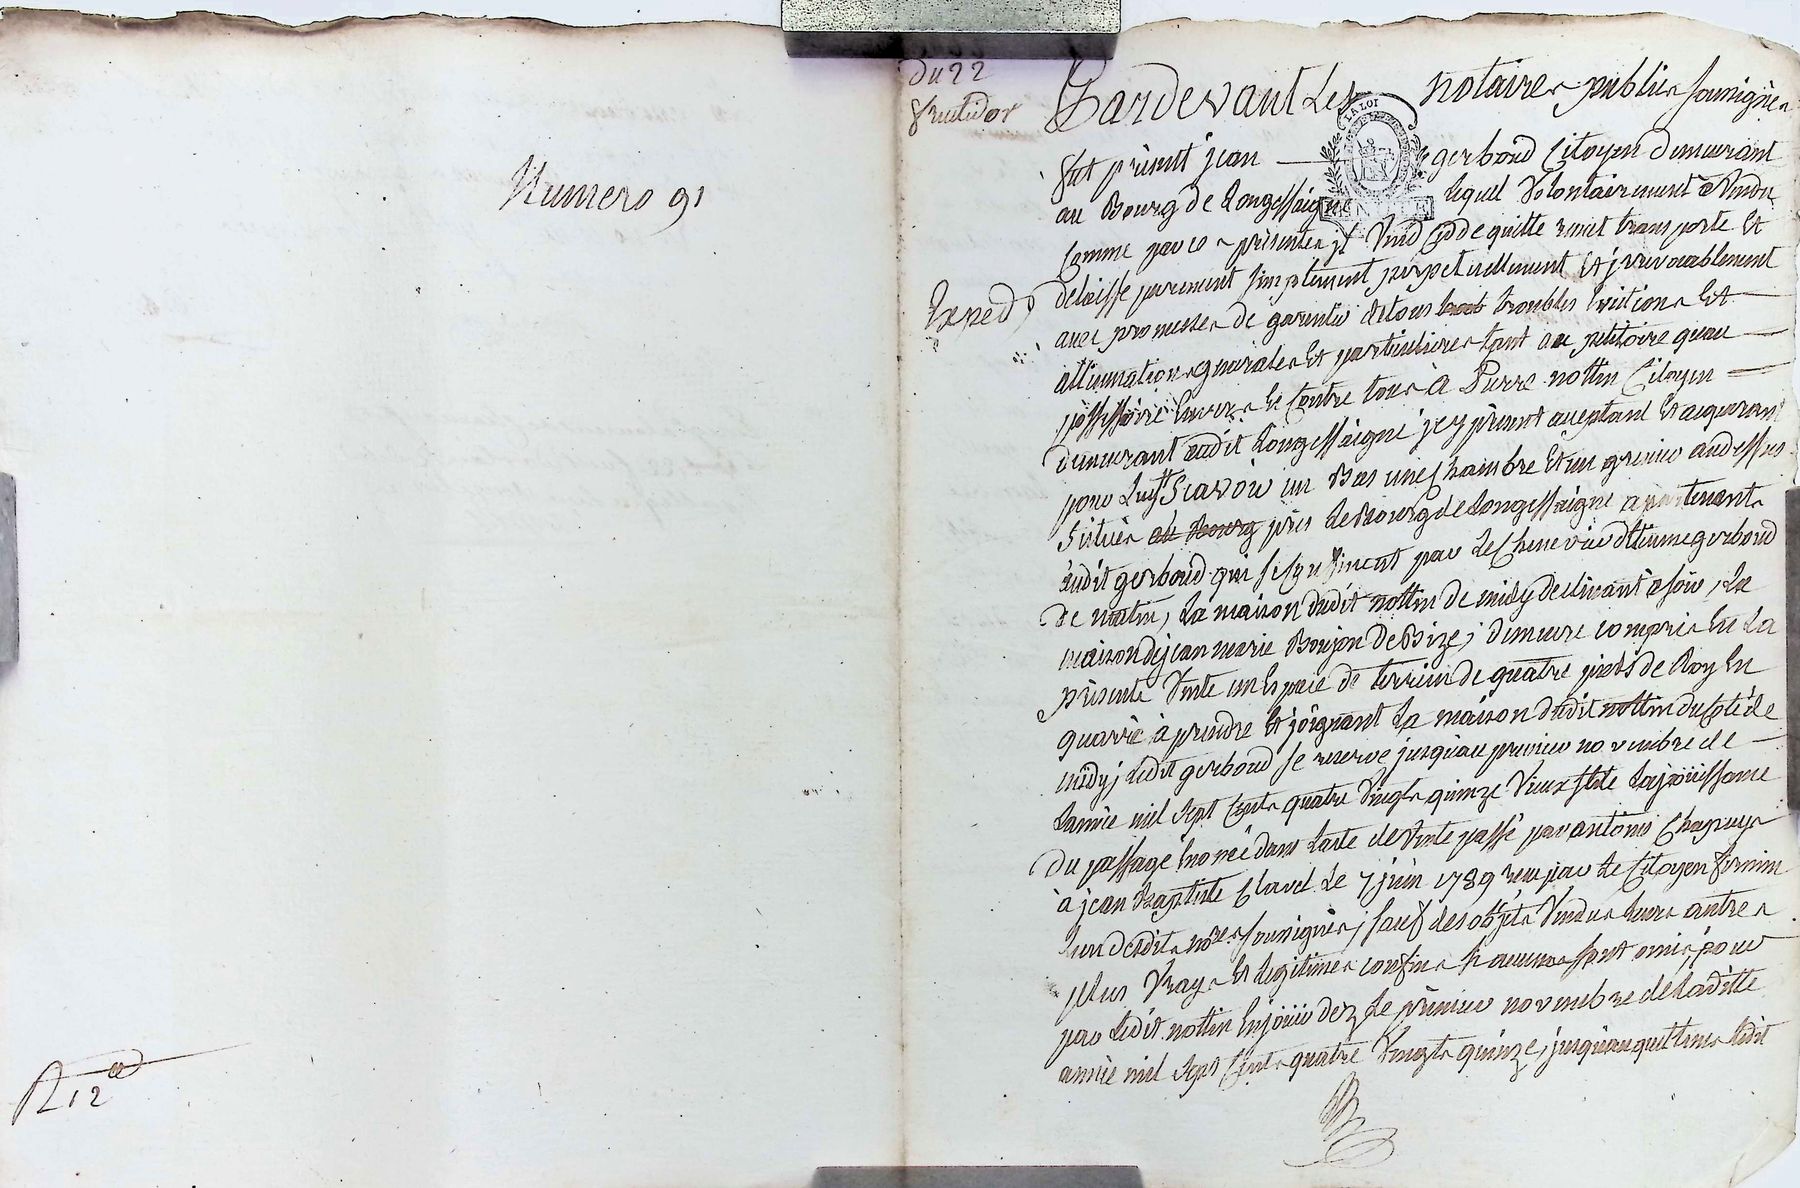 Numero 91
R 12
du 22
fructidor
Exped
Pardevant Les notaires publics soussignés
fut présent jean gerboud Citoyen demeurant
LA LOI
au Bourg de Longessaigne lequel Volontairement a Vendu
Comme par ces présentes jl Vend Cede quitte remet transporte Et
delaisse purement simplement perpetuellement Et jrrevocablement
avec promesses de garentie de tous troubles Evictions Et
allienations generales Et particulieres tant au petitoire quau
possessoire Envers Et Contre tous à Pierre nottin Citoyen
demeurant audit Longessaigne jcy présent acceptant Et acquerant
pour Luy, Scavoir un Bas une Chambre Et un grenier audessus
situés au Bourg près le Bourg de Longessaigne apartenants
audit gerboud qui se confinent par le Chenevier d'Etienne gerboud
de matin, La maison dudit nottin de midy declinant a soir, La
maison de jean marie Boujon de Bize; demeure compris En La
présente Vente un Espace de terrein de quatre pieds de Roy En
quarré à prendre Et joignant La maison dudit nottin du Coté de
midy; Ledit gerboud se reserve jusquau premier novembre de
Lannée mil sept Cents quatre Vingts quinze Vieux stile La jouissance
du passage Enoncé dans Lacte de Vente passé par antoine Chapuy
à jean Baptiste Clavel Le 7 juin 1789 reçu par Le Citoyen firmin
Lun desdits nores soussignés; sauf des objets Vendus Leurs autres
plus Vrays Et Legitimes confins si aucuns sont omis, pour
par Ledit nottin En jouir dez Le premier novembre de Laditte
année mil sept Cents quatre Vingts quinze, jusquauquel tems Ledit